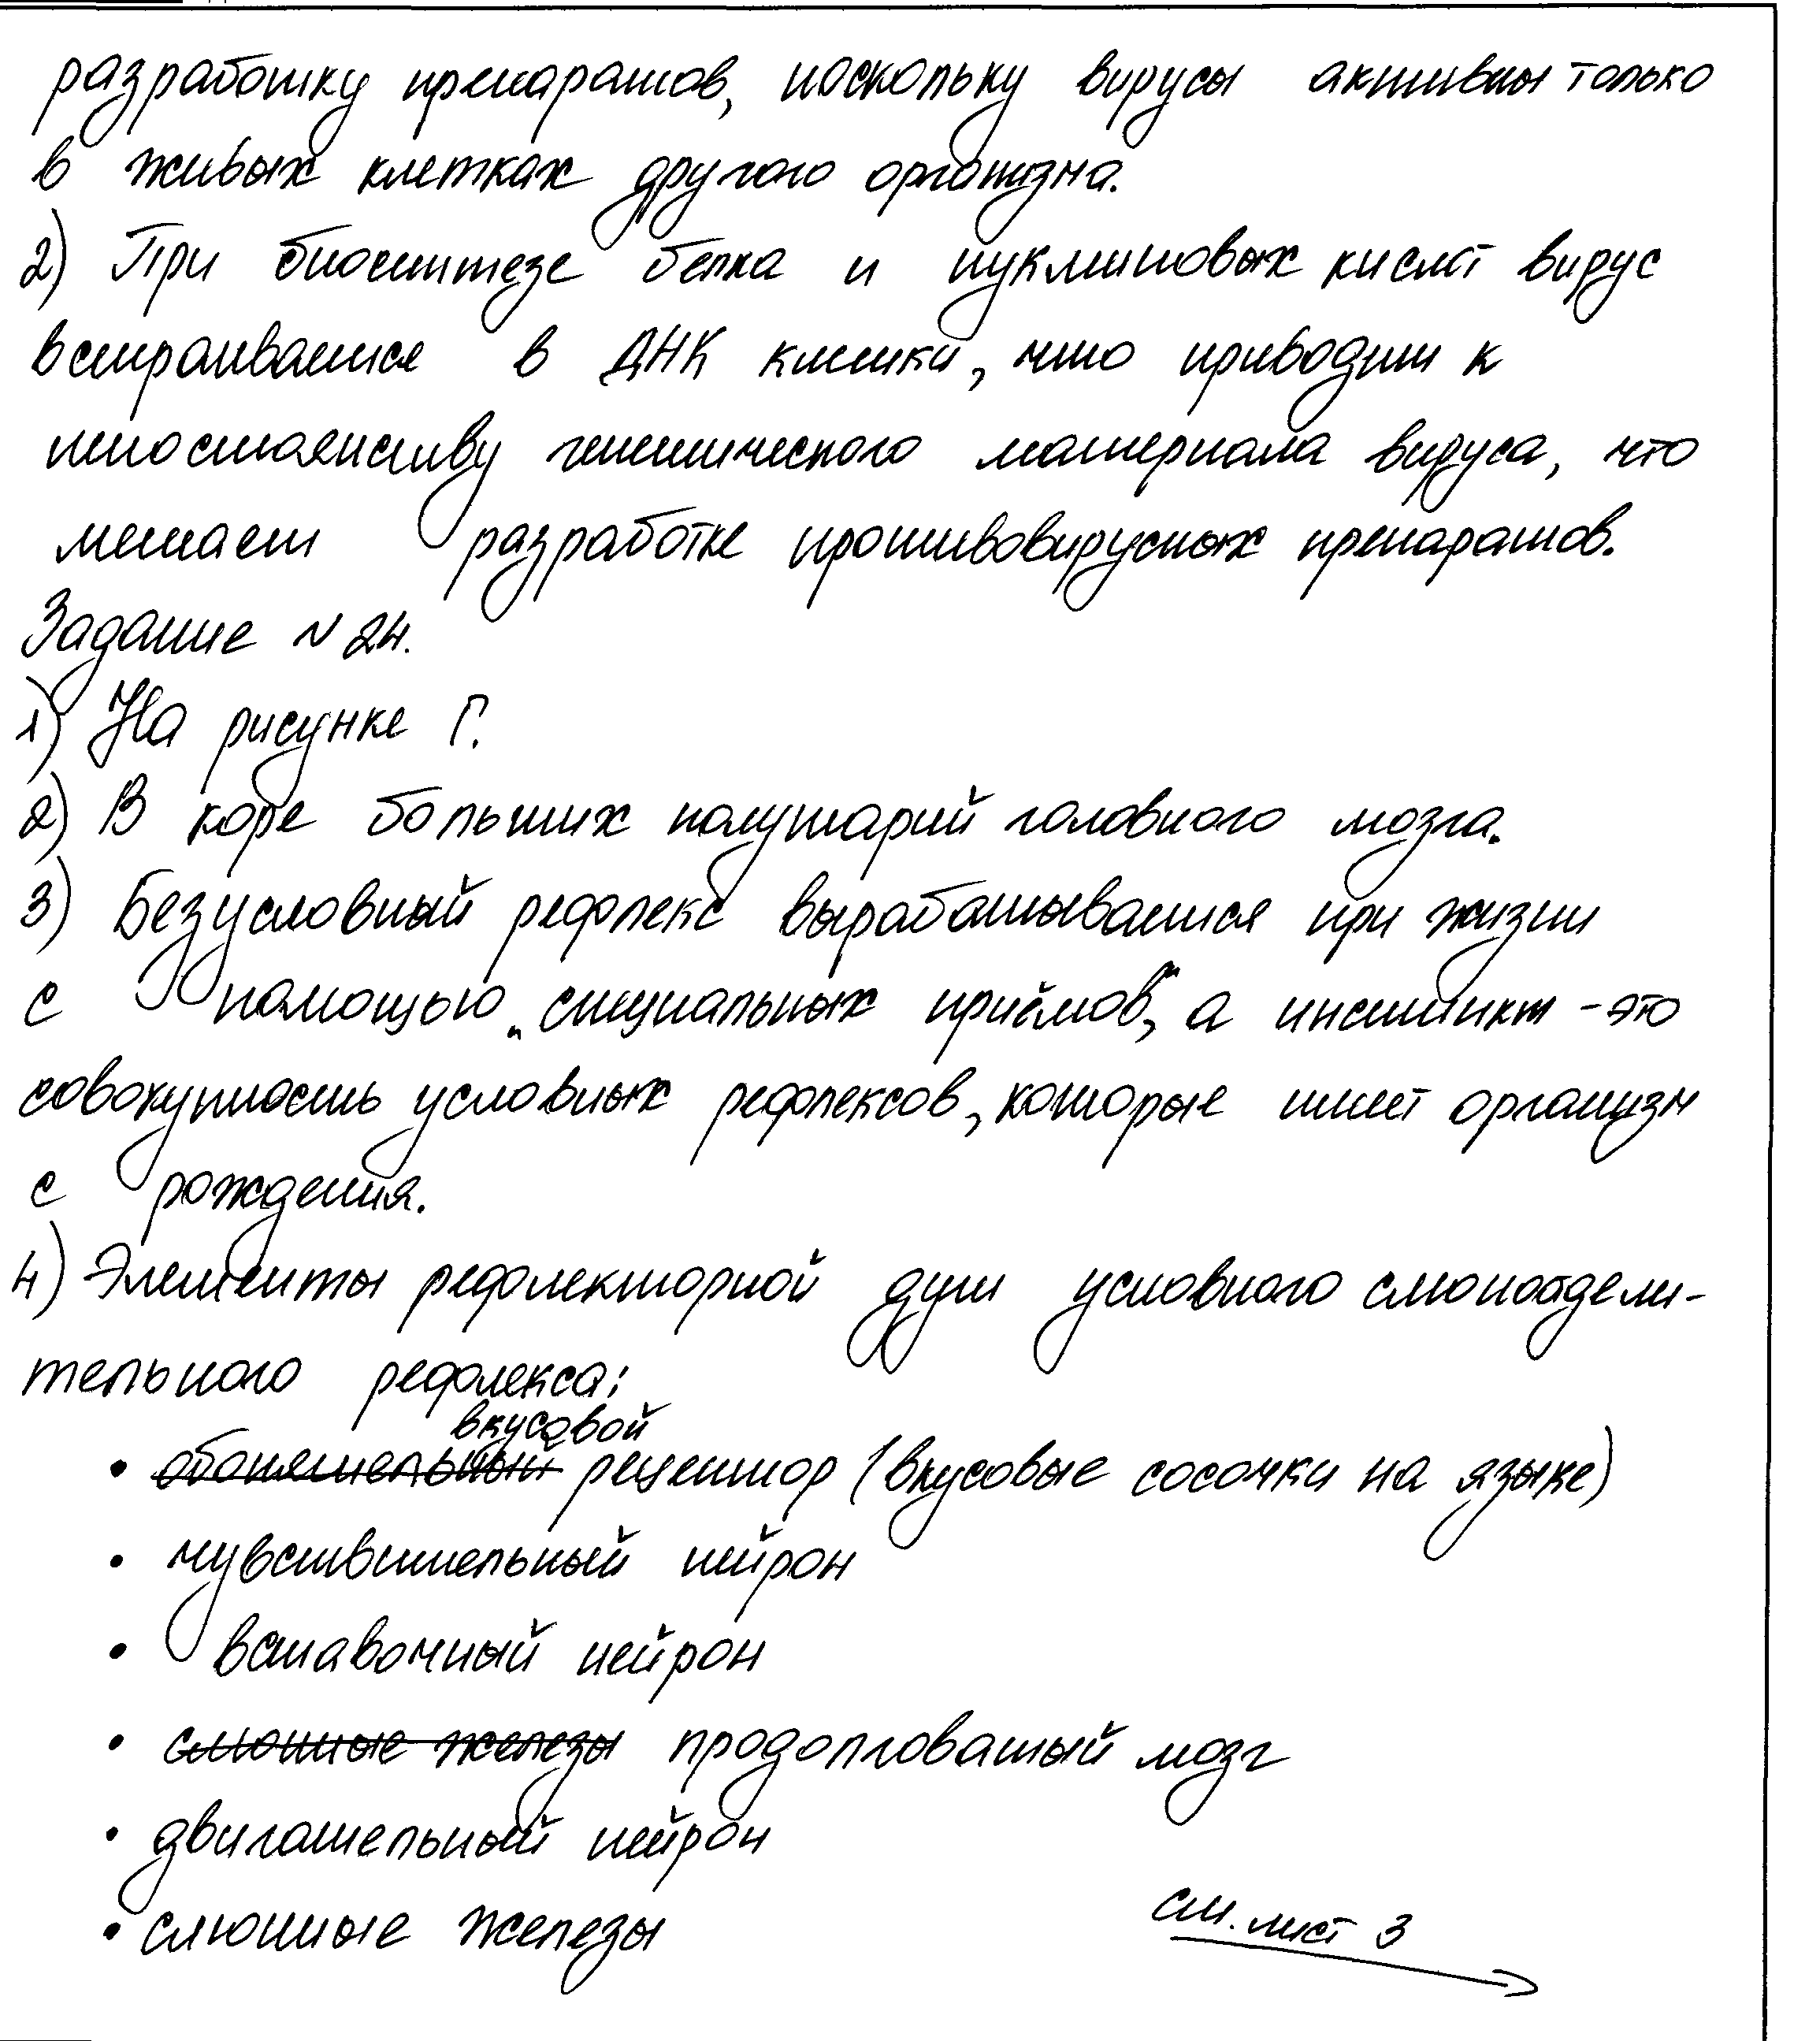 разработку препаратов, поскольку вирусы активны только
в живых клетках другого организма.
2) При биосинтезе белка и нуклеиновых кислот вирус
встраивается в ДНК клетки, что приводит к
непостоянству генетического материала вируса, что
мешает разработке противовирусных препаратов.
Задание № 24.
1) На рисунке Г.
2) В коре больших полушарий головного мозга.
3) Безусловный рефлекс вырабатывается при жизни
с помощью „специальных приёмов“, а инстинкт - это
совокупность условных рефлексов, которые имеет организм
с рождения.
4) Элементы рефлекторной дуги условного слюноотдели-
тельного рефлекса:
вкусовой
• обонятельный рецептор (вкусовые сосочки на языке)
• чувствительный нейрон
• вставочный нейрон
• слюнные железы продолговатый мозг
• двигательный нейрон
• слюнные железы
см. лист 3